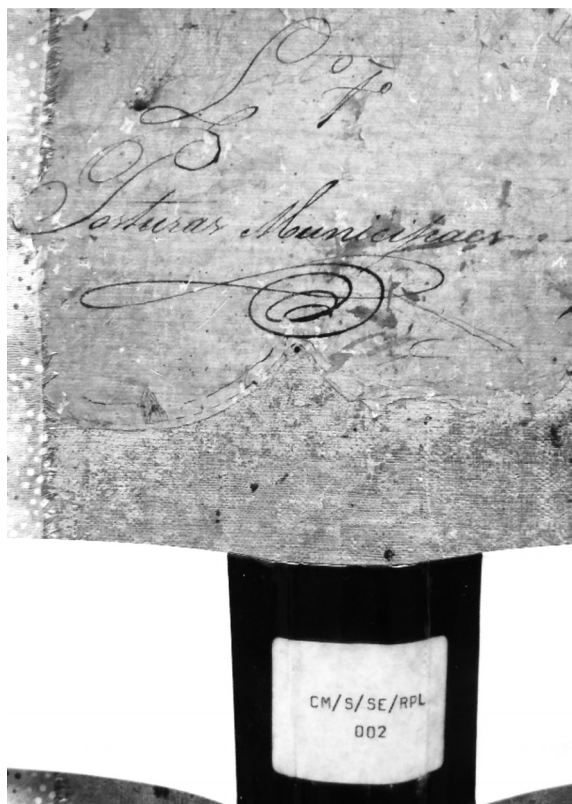 Posturas Municipaes
CM/S/SE/RPL
002